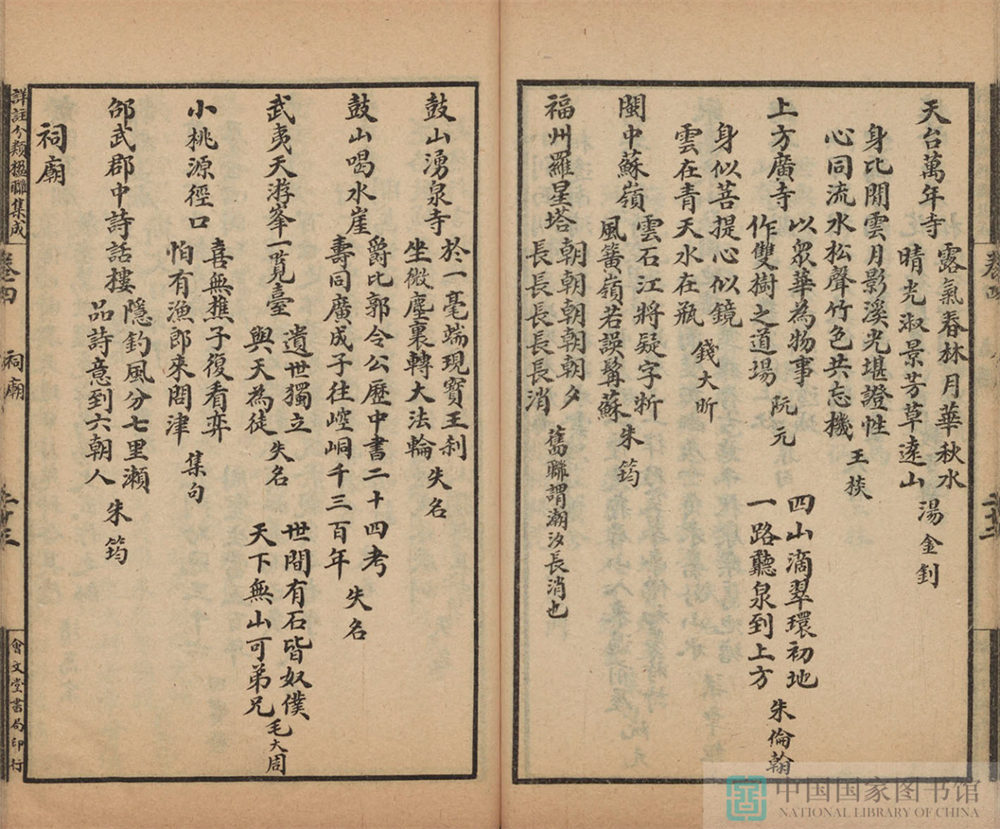 天台萬年寺
露氣春林月華秋水
晴光淑景芳草遠山
湯金釗
身比閒雲月影溪光堪證性
心同流水松聲竹色共忘機
王掞
四山滴翠環初地
一路聽泉到上方
朱倫翰
上方廣寺
以衆華為物事
作雙樹之道場
阮元
身似菩提心似鏡
雲在青天水在瓶
錢大昕
閩中蘇嶺
雲石江將疑字斨
風簧嶺若誤髯蘇
朱筠
福州羅星塔
朝朝朝朝朝朝夕
長長長長長長消
舊聯謂潮汐長消也
鼓山湧泉寺
於一毫端現寳王刹
坐微塵裏轉大法輪
失名
鼓山喝水崖
爵比郭令公歷中書二十四考
壽同廣成子往崆峒千三百年
失名
武夷天游峯一覧臺
遺世獨立
與天為徒
失名
世間有石皆奴僕
天下無山可弟兄
毛大周
小桃源徑口
喜無樵子復看弈
怕有漁郎來問津
集句
邵武郡中詩話樓
隱釣風分七里瀨
品詩意到六朝人
朱筠
祠廟
詳註分類楹聯集成
卷四
祠廟
會文堂書局印行
中国国家图书馆
NATIONAL LIBRARY OF CHINA